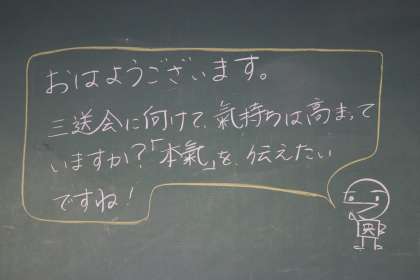 おはようございます。
三送会に向けて、氣持ちは高まって
いますか?「本氣」を、伝えたい
ですね!
奥